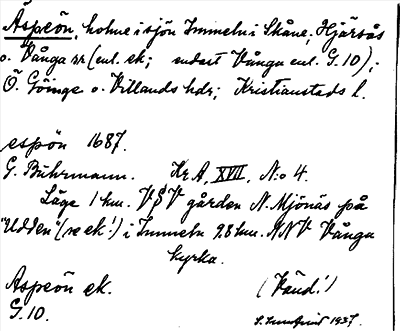 Äspeön, holme i sjön Immeln i Skåne; Hjärsås
o. Vånga snr (enl. ek; endast Vånga enl. G. 10);
Ö. Göinge o. Villands hdr; Kristianstads l.
espön 1687.
G. Buhrmann. Kr A, XVII, No 4.
Läge 1 km. VSV gården N. Mjönäs på
"Udden" (se ek!) i Immeln 9.8 km. NNV Vånga
kyrka.
Äspeön ek. (Vänd!)
G. 10. 1937.